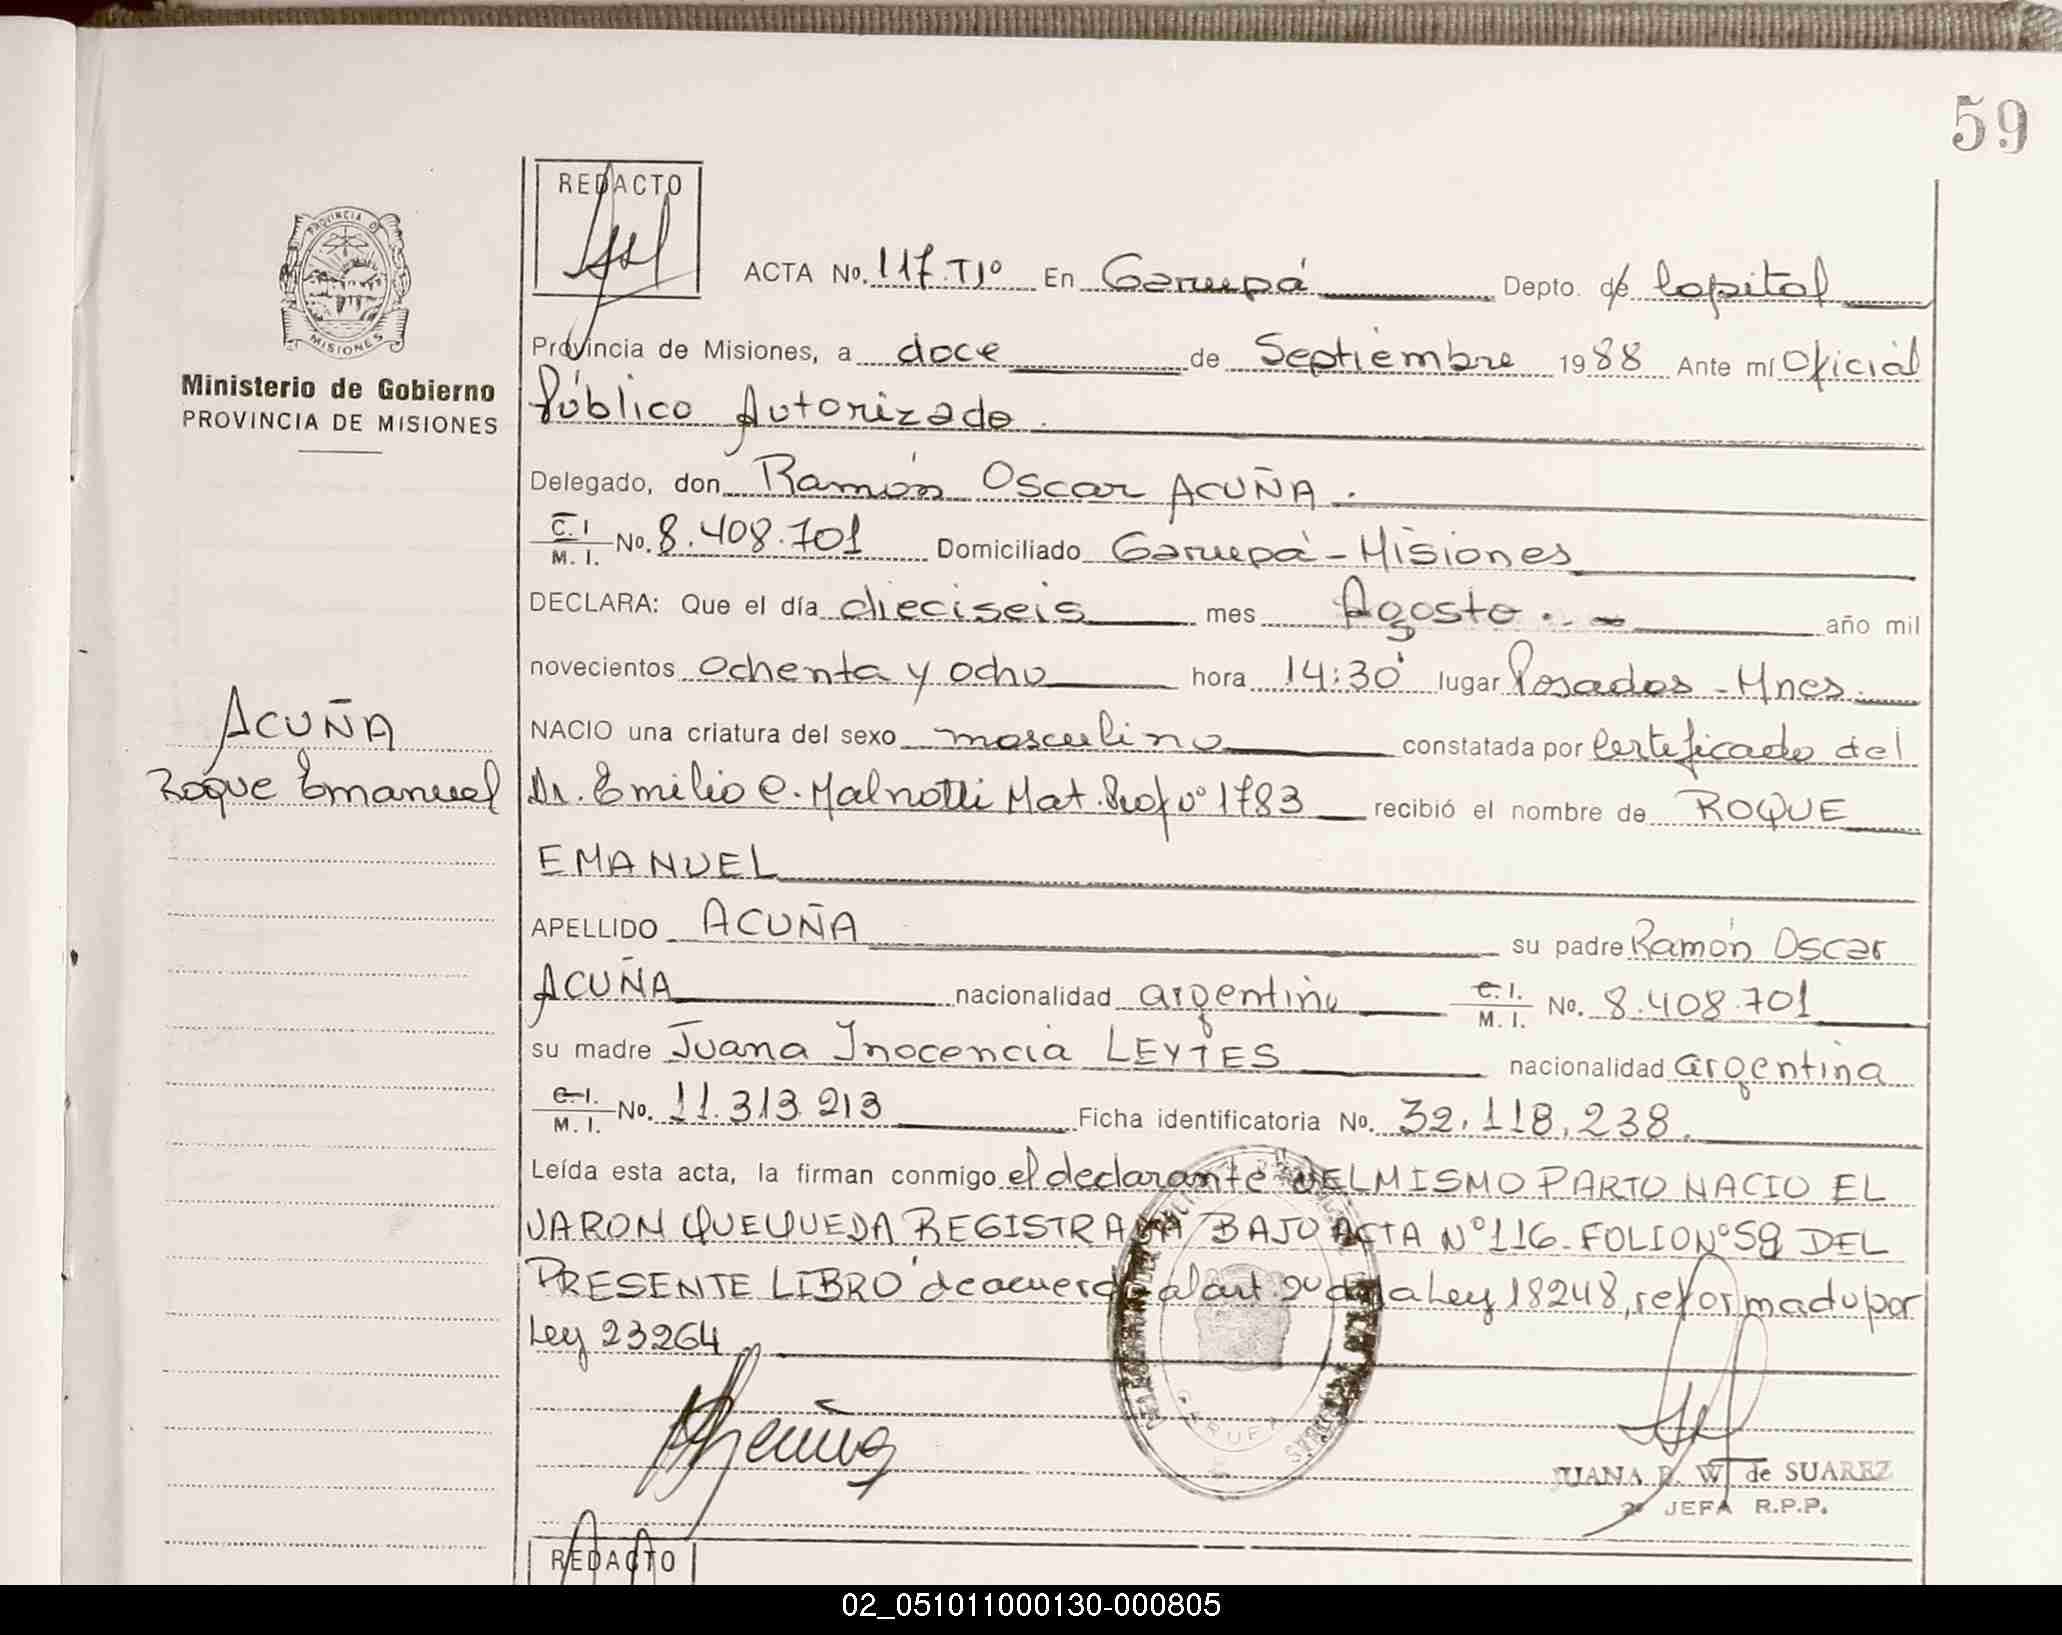 59
REDACTO
PROVINCIA DE
MISIONES
Ministerio de Gobierno
PROVINCIA DE MISIONES
ACTA No. 117.TIº En Garupá Depto. de Capital
Provincia de Misiones, a doce de Septiembre 1988 Ante mí Oficial
Público Autorizado.
Delegado, don Ramón Oscar ACUÑA.
C. I. M. I. No. 8.408.701 Domiciliado Garupá - Misiones
DECLARA: Que el día dieciseis mes Agosto.- año mil
novecientos ochenta y ocho hora 14:30 lugar Posadas - Mnes.
ACUÑA
Roque Emanuel
NACIO una criatura del sexo masculino constatada por Certificado del
Dr. Emilio C. Malnotti Mat. Prof nº 1783 recibió el nombre de ROQUE
EMANUEL
APELLIDO ACUÑA su padre Ramón Oscar
ACUÑA nacionalidad argentino C. I. M. I. No. 8.408.701
su madre Juana Inocencia LEYTES nacionalidad argentina
C. I. M. I. No. 11.313.213 Ficha identificatoria No. 32.118.238.
Leída esta acta, la firman conmigo el declarante DEL MISMO PARTO NACIO EL
VARON QUE QUEDA REGISTRADA BAJO ACTA Nº 116 - FOLIO Nº 58 DEL
PRESENTE LIBRO de acuerdo al art de la Ley 18248, reformado por
Ley 23264
Acuña
JUANA R. W. de SUAREZ
2º JEFA R.P.P.
REDACTO
02_051011000130-000805